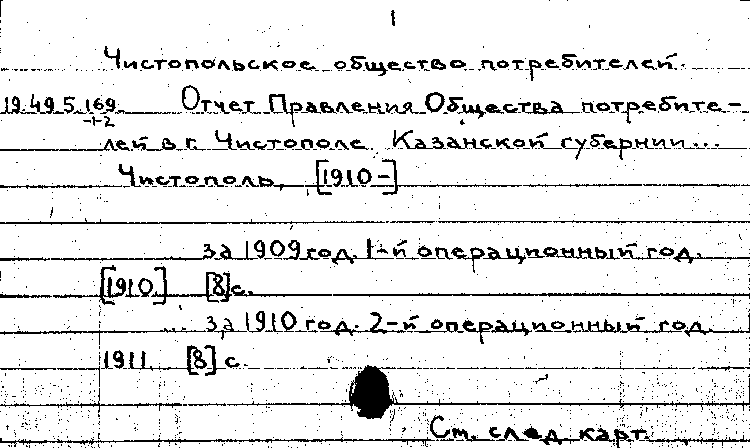 1
Чистопольское общество потребителей.
19.49.5.169. Отчет Правления Общества потребите-
-1-2
лей в г. Чистополе Казанской губернии...
Чистополь, [1910-]
за 1909 год. 1-й операционный год.
[1910.] [8]с.
... за 1910 год. 2-й операционный год.
1911. [8] с.
См. след. карт.